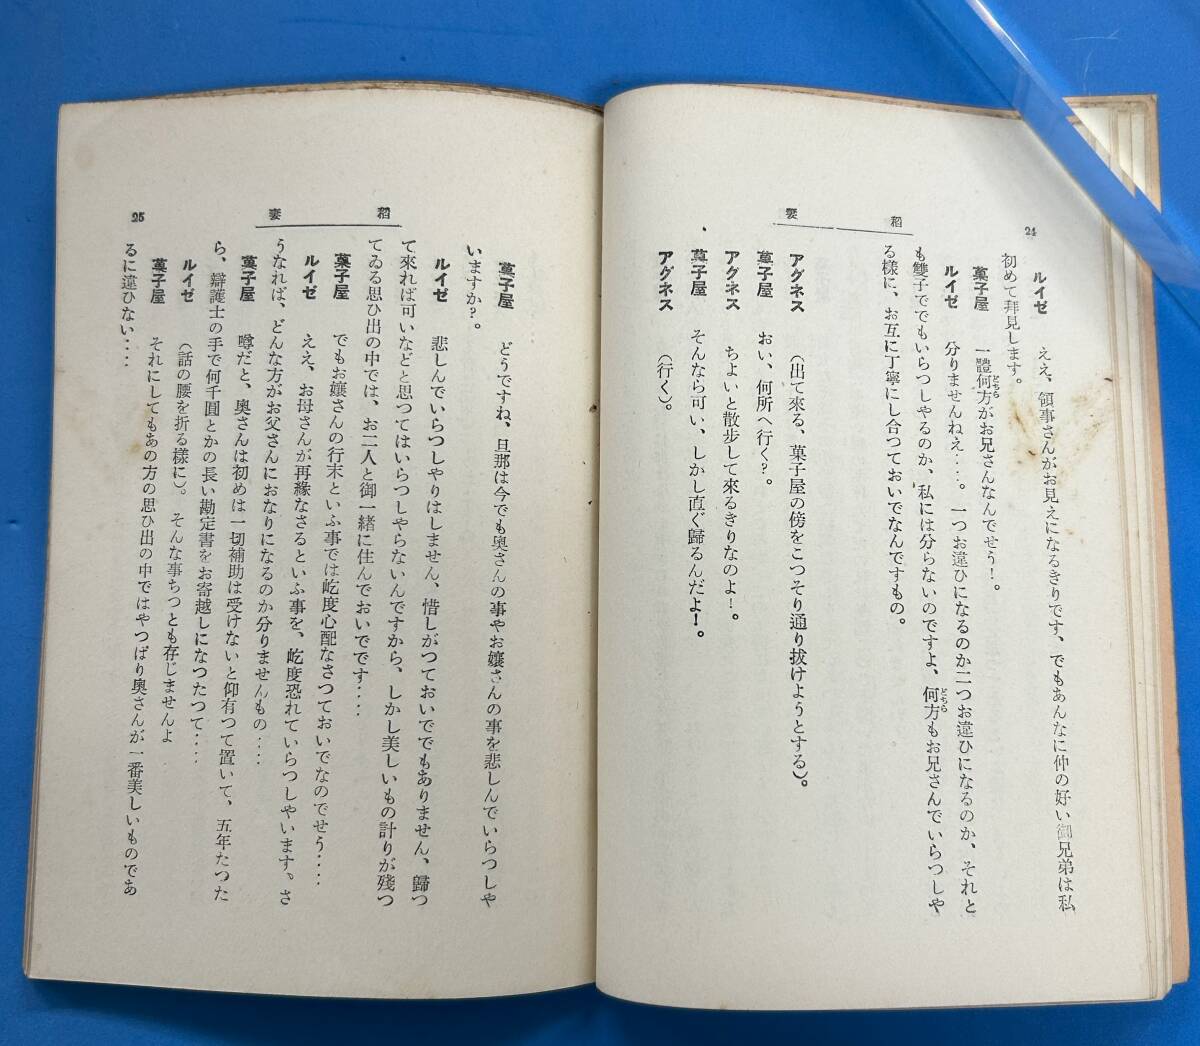 24
稻妻
ルイゼ　ええ、領事さんがお見えになるきりです、でもあんなに仲の好い御兄弟は私
初めて拜見します。
菓子屋　一體何方がお兄さんなんでせう！。
ルイゼ　分りませんねえ‥‥。一つお違ひになるのか二つお違ひになるのか、それと
も雙子ででもいらつしやるのか、私には分らないのですよ、何方もお兄さんでいらつしや
る樣に、お互に丁寧にし合つておいでなんですもの。
アグネス　（出て來る、菓子屋の傍をこつそり通り拔けようとする）。
菓子屋　おい、何所へ行く？。
アグネス　ちよいと散步して來るきりなのよ！。
菓子屋　そんなら可い、しかし直ぐ歸るんだよ！。
アグネス　（行く）。
稻妻
25
菓子屋　どうですね、旦那は今でも奧さんの事やお孃さんの事を悲しんでいらつしや
いますか？。
ルイゼ　悲しんでいらつしやりはしません、惜しがつておいででもありません、歸つ
て來れば可いなどと思つてはいらつしやらないんですから、しかし美しいもの計りが殘つ
てゐる思ひ出の中では、お二人と御一緒に住んでおいでです‥‥
菓子屋　でもお孃さんの行末といふ事では屹度心配なさつておいでなのでせう‥‥
ルイゼ　ええ、お母さんが再緣なさるといふ事を、屹度恐れていらつしやいます。さ
うなれば、どんな方がお父さんにおなりになるのか分りませんもの‥‥
菓子屋　噂だと、奧さんは初めは一切補助は受けないと仰有つて置いて、五年たつた
ら、辯護士の手で何千圓とかの長い勘定書をお寄越しになつたつて‥‥
ルイゼ　（話の腰を折る樣に）。そんな事ちつとも存じませんよ
菓子屋　それにしてもあの方の思ひ出の中ではやつぱり奧さんが一番美しいものであ
るに違ひない‥‥